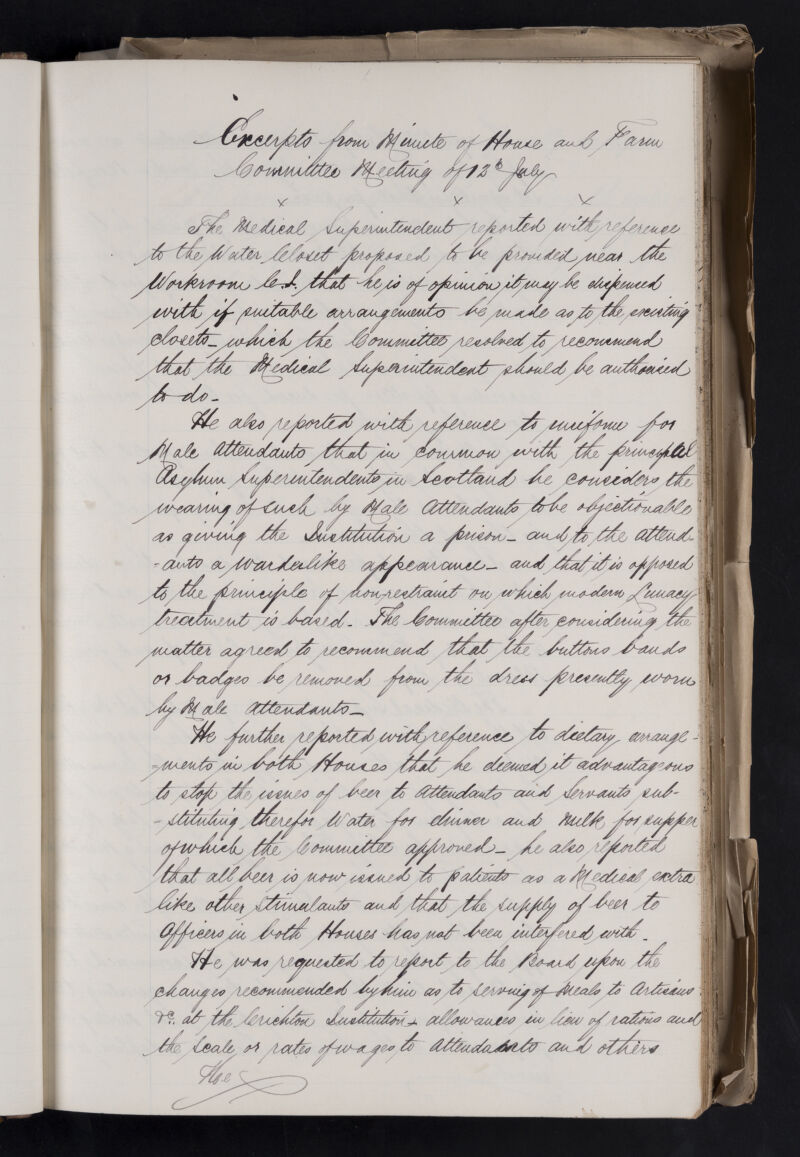 Excerpts from Minute of House and Farm
Committee Meeting of 12th July
x x x
The Medical Superintendent reported with reference
to the Water Closet proposed to be provided near the
Workroom C.I. that he is of opinion it may be dispensed
with if suitable arrangements be made as to the existing
closets_ which the Committee resolved to recommend
that the Medical Superintendent should be authorised
to do_
He also reported with reference to uniform for
Male Attendants that in common with the principal
Asylum Superintendents in Scotland he considers the
wearing of such by Male Attendants to be objectionable
as giving the Institution a prison_ and to the attend-
-ants a warderlike appearance_ and that it is opposed
to the principle of nonrestraint on which modern Lunacy
treatment is based_ The Committee after considering the
matter agreed to recommend that the buttons bands
or badges be removed from the dress presently worn
by Male Attendants_
He further reported with reference to dietary arrange-
-ments in both Houses that he deemed it advantageous
to stop the issues of beer to Attendants and Servants sub-
-stituting therefor Water for dinner and Milk for supper
of which the Committee approved_ he also reported
that all beer is now issued to patients as a Medical extra
like other stimulants and that the supply of beer to
Officers in both Houses has not been interfered with.
He was requested to report to the Board upon the
changes recommended by him as to serving of Meals to Artisans
&c. at the Crichton Institution_ allowances in lieu of rations and
the Scale or rates of wages to Attendants and others
The